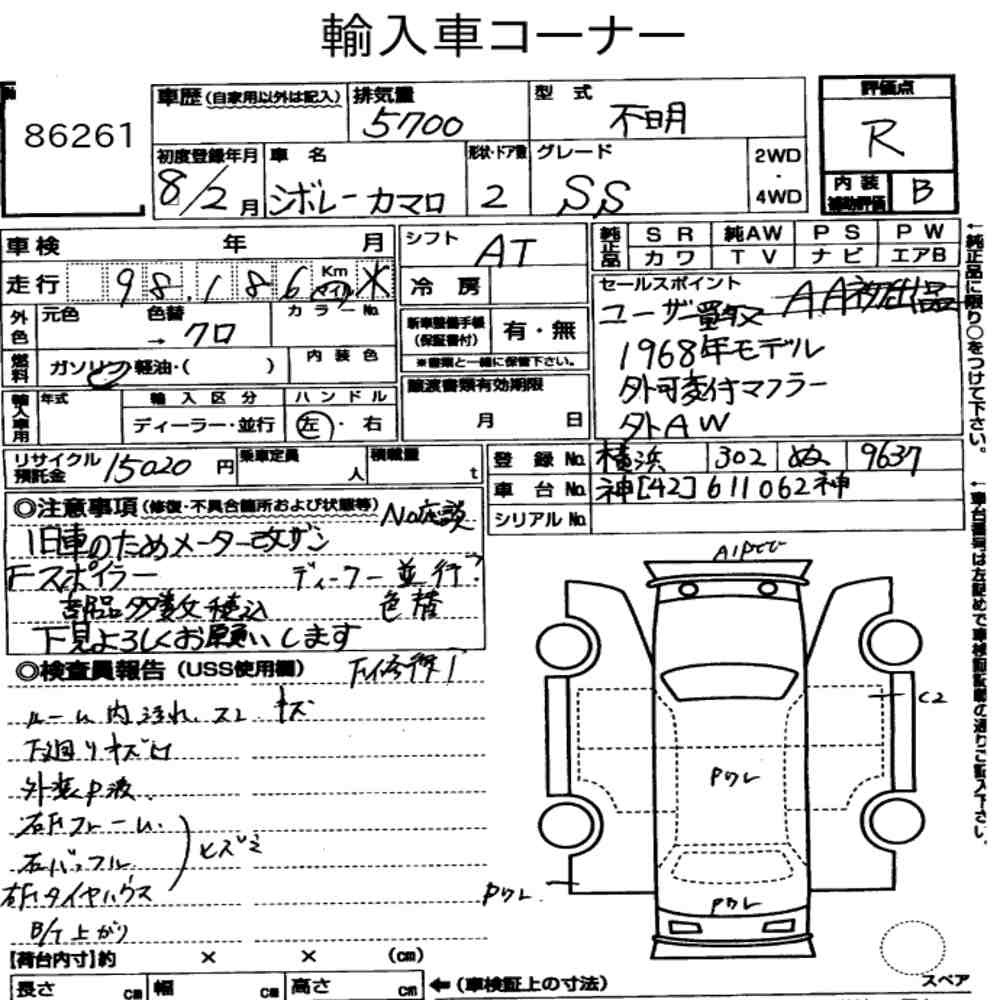 輸入車コーナー
86261
車歴 (自家用以外は記入)
排気量
5700
型式
不明
評価点
R
初度登録年月
8/2月
車名
シボレーカマロ
形状・ドア数
2
グレード
SS
2WD
・
4WD
内装
補助評価
B
車検 年 月
走行 98,186 Km マイル ※
シフト
AT
冷房
純正品
SR 純AW PS PW
カワ TV ナビ エアB
外色
元色 色替
→ クロ
カラーNo.
燃料
ガソリン・軽油・( )
内装色
新車整備手帳
(保証書付)
有・無
※書類と一緒に保管下さい。
セールスポイント
ユーザー買取 AA初出品
1968年モデル
外可変付マフラー
外AW
輸入車用
年式
輸入区分
ディーラー・並行
ハンドル
左・右
譲渡書類有効期限
月 日
リサイクル
預託金
15020円
乗車定員
人
積載量
t
登録No. 横浜 302 ぬ 9637
車台No. 神[42]611062神
シリアルNo.
←純正品に限り○をつけて下さい。
←車台番号は左詰めで車検証記載の通りご記入下さい。
◎注意事項 (修復・不具合箇所および状態等) No応談
旧車のためメーター改ザン
Fスポイラー ディーラー並行?
部品多数積込 色替
下見よろしくお願いします
◎検査員報告 (USS使用欄)
ルーム内汚れ、スレ キズ
下廻りキズ凹
外装P波
右Fフレーム
右バッフル
右Fタイヤハウス
ヒズミ
B/T上がり
C2
Pワレ
Pワレ
Pワレ
【荷台内寸】約 × × (cm)
長さ cm 幅 cm 高さ cm ←(車検証上の寸法)
スペア